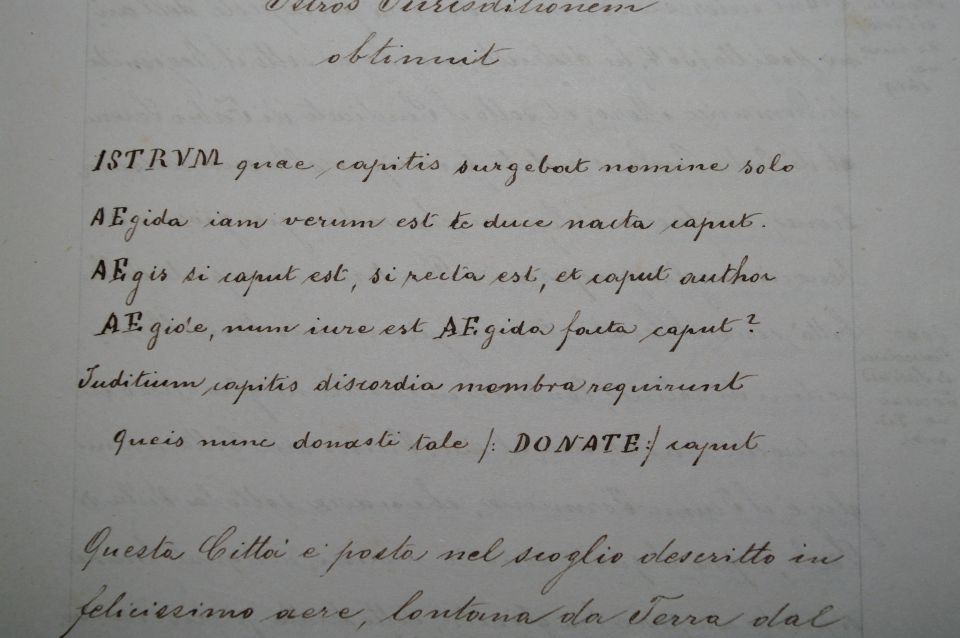 Istros Jurisditionem
obtinuit
ISTRVM quae capitis surgebat nomine solo
AEgida iam verum est te duce nacta caput.
AEgis si caput est, si recta est, et caput author
AEgide, num iure est AEgida facta caput?
Juditium capitis discordia membra requirunt
Queis nunc donasti tale /: DONATE :/ caput
Questa Città è posta nel scoglio descritto in
felicissimo aere, lontana da Terra dal